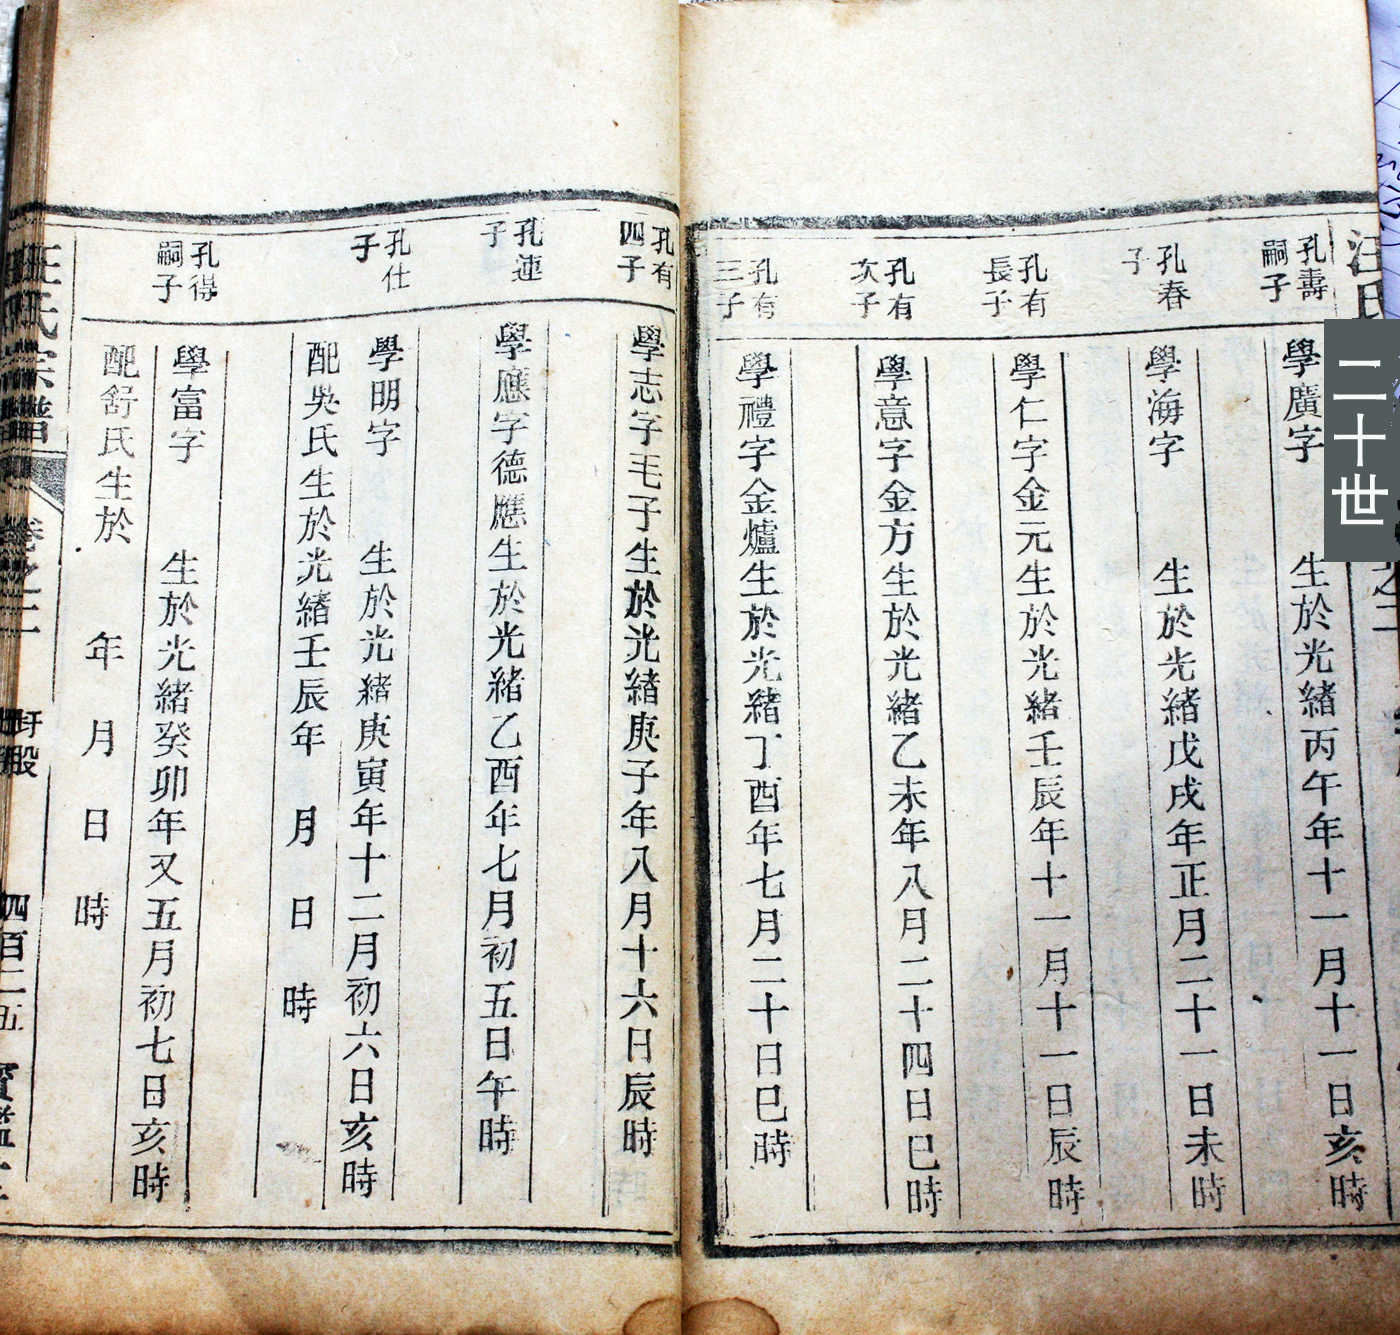 汪氏
二十世
之二
孔壽
嗣子
學廣字 生於光緒丙午年十一月十一日亥時
孔春
子
學海字 生於光緒戊戌年正月二十一日未時
孔有
長子
學仁字金元生於光緒壬辰年十一月十一日辰時
孔有
次子
學意字金方生於光緒乙未年八月二十四日巳時
孔有
三子
學禮字金爐生於光緒丁酉年七月二十日巳時
孔有
四子
學志字毛子生於光緒庚子年八月十六日辰時
孔連
子
學應字德應生於光緒乙酉年七月初五日午時
孔仕
子
學明字 生於光緒庚寅年十二月初六日亥時
配吳氏生於光緒壬辰年 月 日 時
孔得
嗣子
學富字 生於光緒癸卯年又五月初七日亥時
配舒氏生於 年 月 日 時
汪氏宗譜 卷之二 四百二五